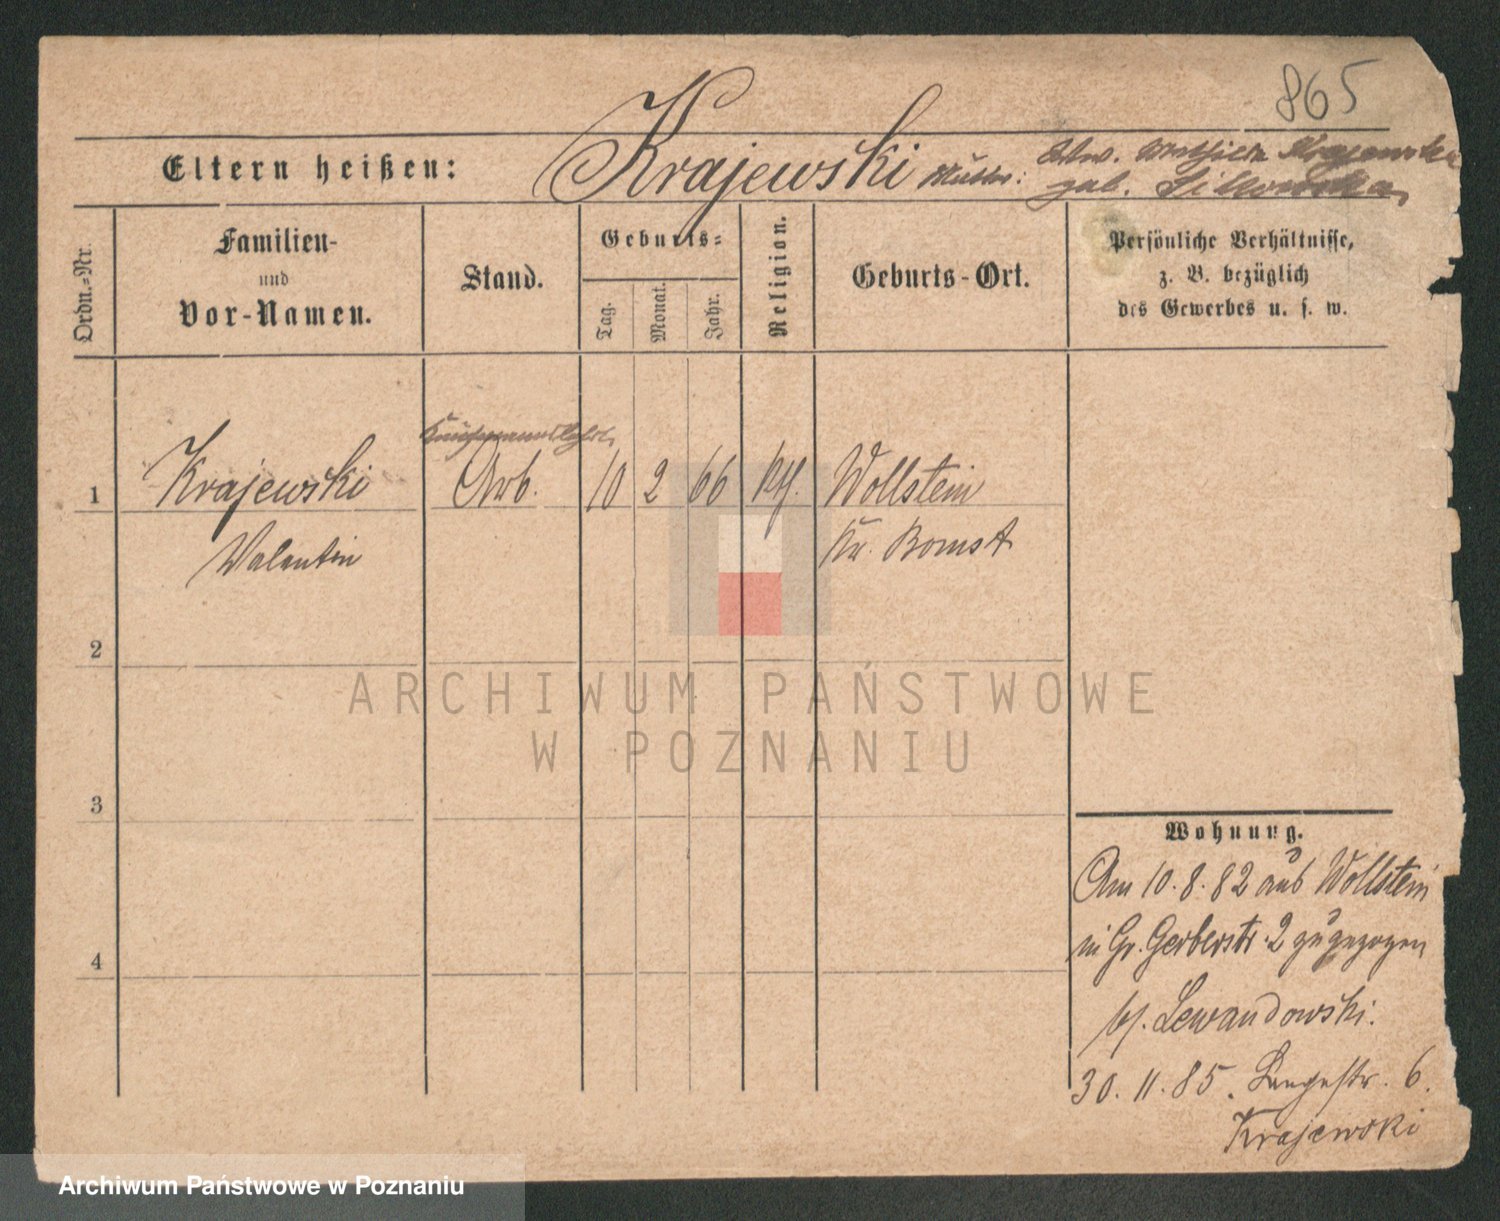 865
Eltern heißen: Krajewski Mutter: Krajewska
geb.
Ordn.-Nr.
Familien-
und
Vor-Namen.
Stand.
Geburts-
Tag.
Monat.
Jahr.
Religion.
Geburts-Ort.
Persönliche Verhältnisse,
z. B. bezüglich
des Gewerbes u. s. w.
1 Krajewski Arb. 10 2 66 kth. Wollstein
Valentin Kr. Bomst
2
3
4
ARCHIWUM PAŃSTWOWE
W POZNANIU
Wohnung.
Am 10.8.82 aus Wollstein
in Gr. Gerberstr. 2 zugezogen
bei Lewandowski.
30.11.85. Langestr. 6.
Krajewski
Archiwum Państwowe w Poznaniu